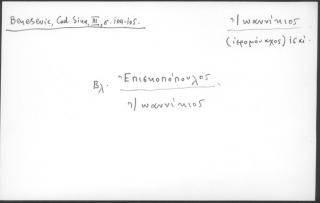 Benešević, Cod. Sina, III, σ. 104-105.
Ἰωαννίκιος
(ἱερομόναχος) ἰεʹ
Βλ. Ἐπισκοπόπουλος
Ἰωαννίκιος